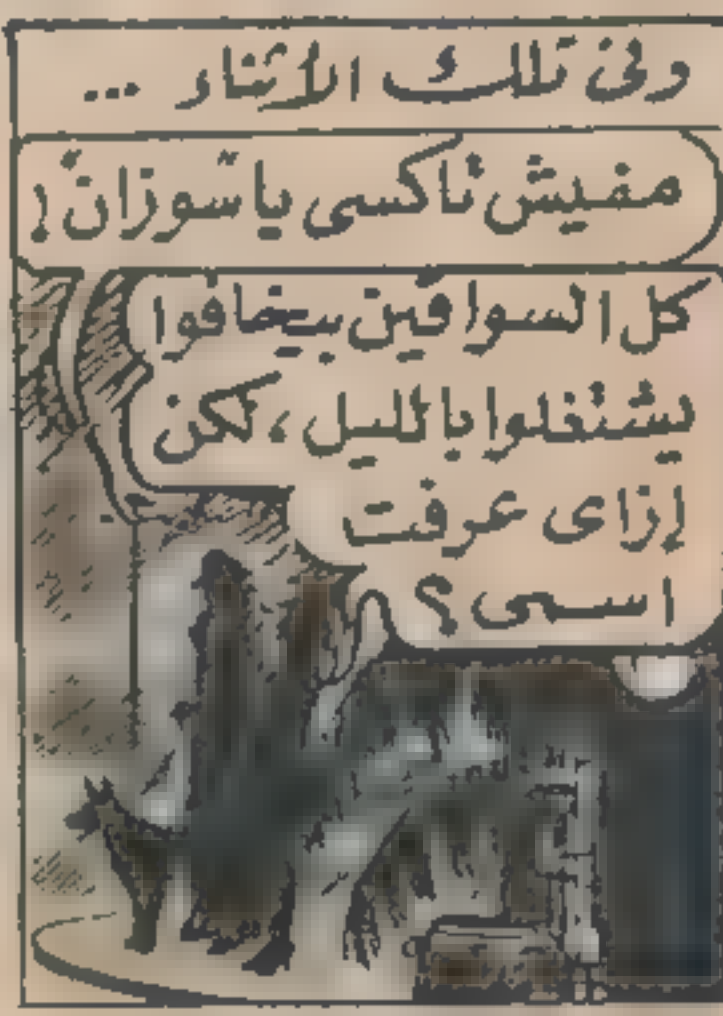 وفى تلك الأثناء ...
مفيش تاكسى يا سوزان !
كل السواقين بيخافوا
يشتغلوا بالليل ، لكن
إزاى عرفت
اسمى ؟